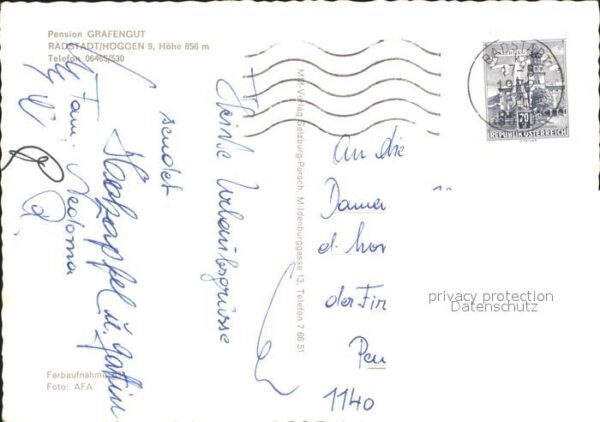 Pension GRAFENGUT
RADSTADT/HÖGGEN 9, Höhe 856 m
Telefon 06465/530
RADSTADT
70
REPUBLIK ÖSTERREICH
MM-Verlag Salzburg-Parsch, Mildenburggasse 13, Telefon 7 66 51
Urlaubsgrüsse
sendet
Holzapfel u. Gattin
u. Fam. Nedoma
An die
Damen
d.
der Fir
1140
privacy protection
Datenschutz
Farbaufnahme
Foto: AFA